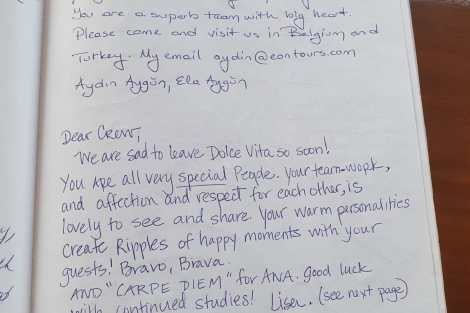 You are a superb team with big heart.
Please come and visit us in Belgium and
Turkey. My email aydin@eontours.com
Aydın Aygün, Ela Aygün
Dear Crew,
We are sad to leave Dolce Vita so soon!
You are all very special People. Your team-work,
and affection and respect for each other, is
lovely to see and share. Your warm personalities
create Ripples of happy moments with your
guests! Bravo, Brava.
AND "CARPE DIEM" for ANA. Good luck
with continued studies! Lisa. (see next page)